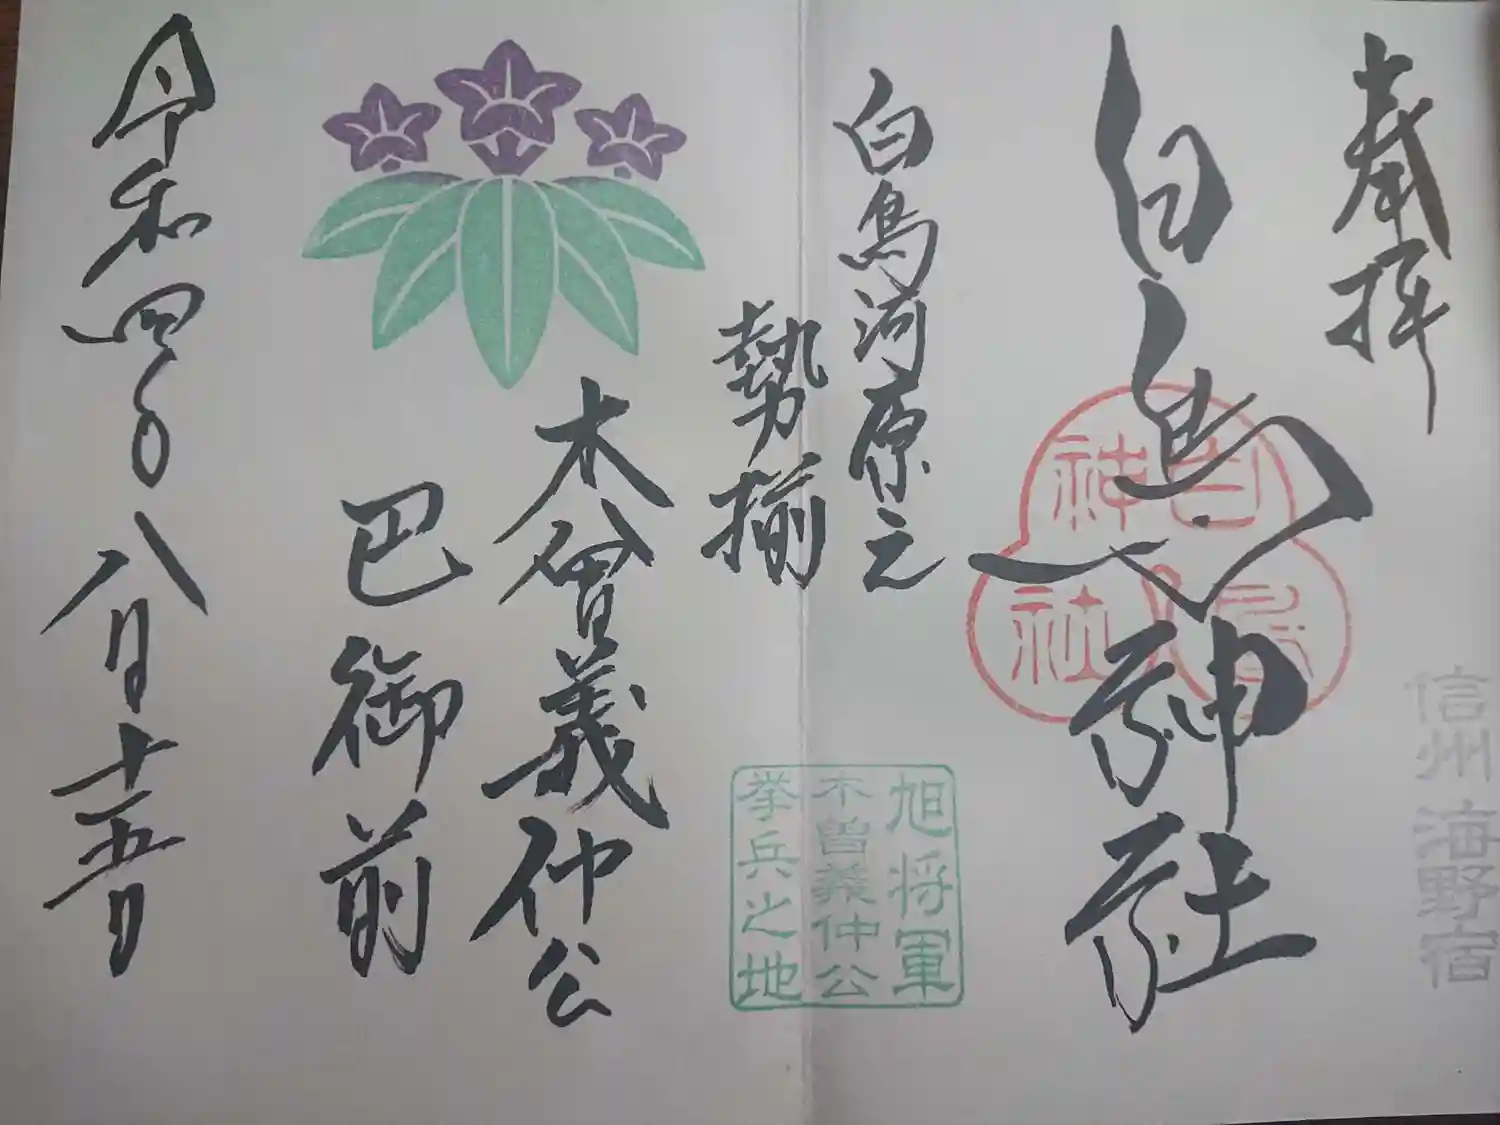 奉拝
信州 海野宿
白鳥神社
白鳥神社
白鳥河原之
勢揃
旭将軍
木曽義仲公
挙兵之地
木曽義仲公
巴御前
令和四年八月十五日